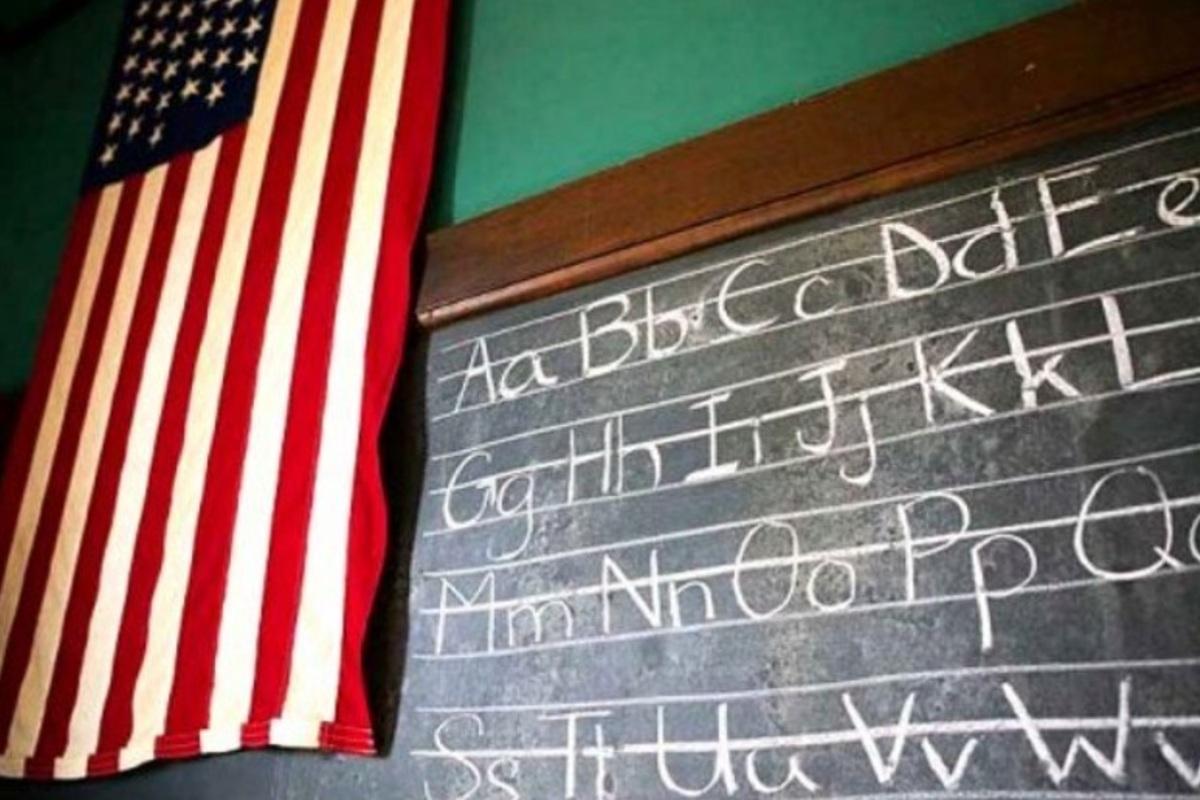 Aa Bb Cc Dd E e
Gg Hh Ii Jj Kk L
Mm Nn Oo Pp Q
Ss Tt Uu Vv W